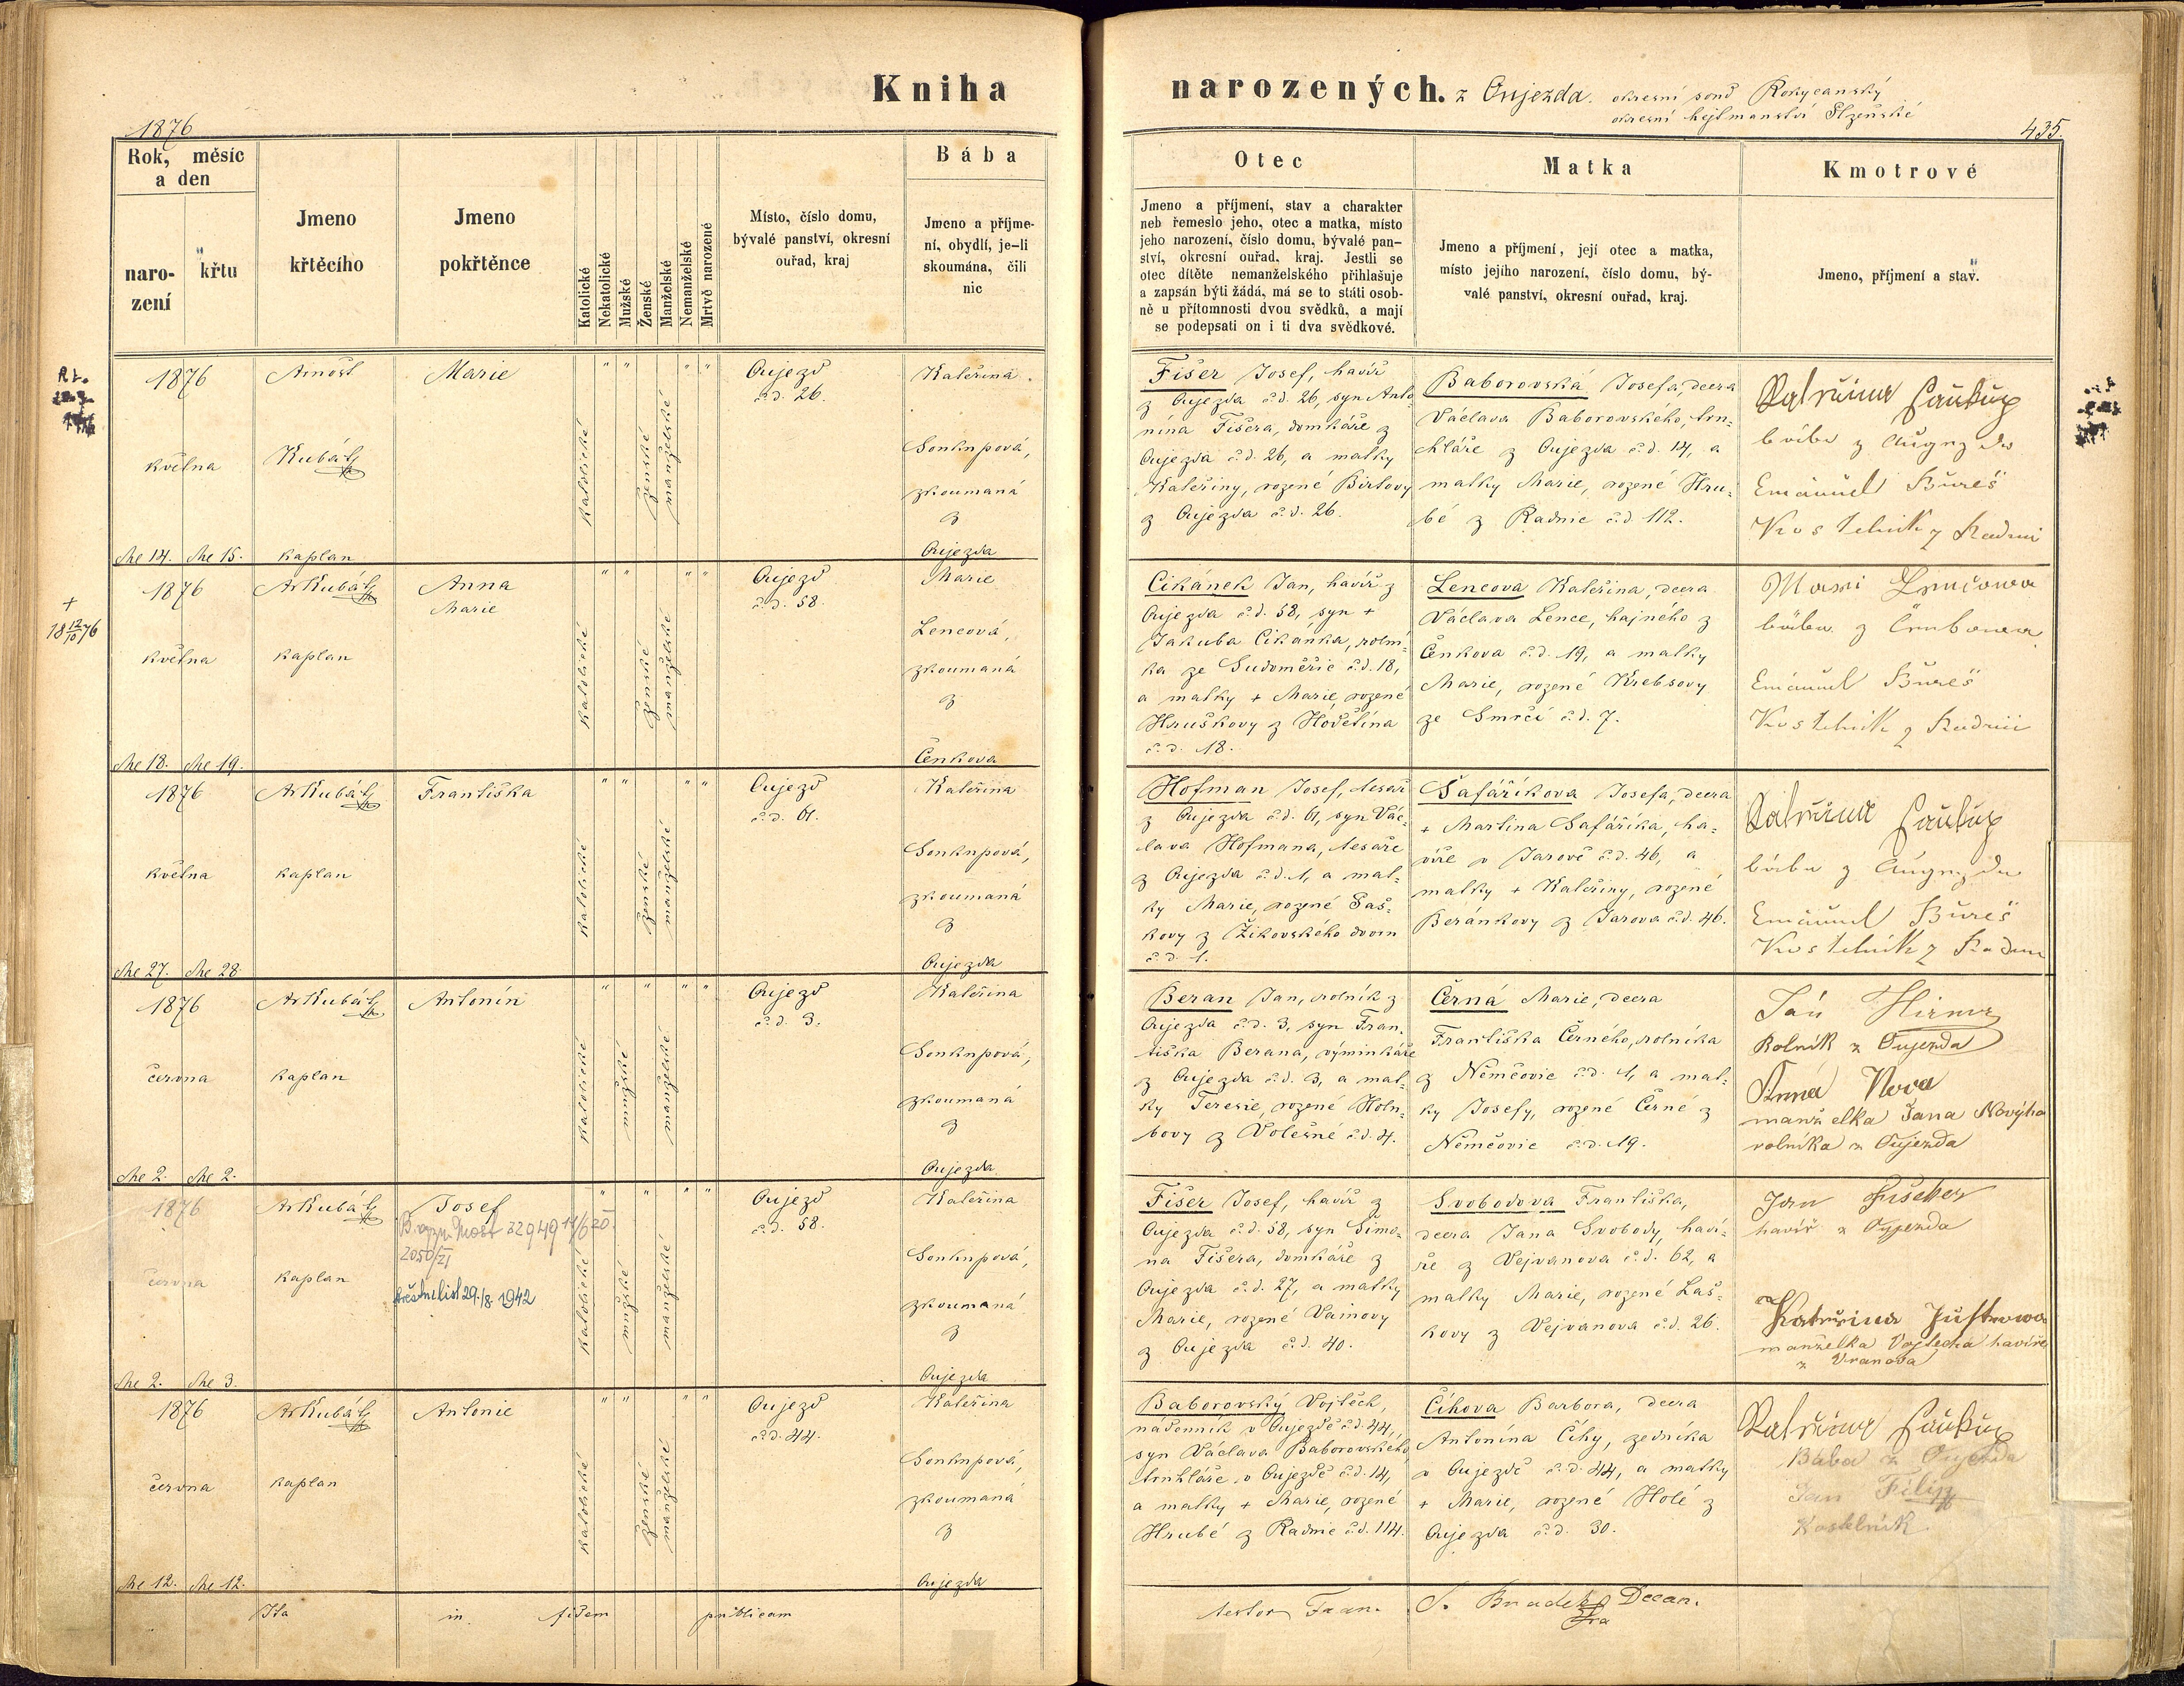 Kniha narozených. z Oujezda. okresní soud Rokycanský
okresní hejtmanství Plzeňské
1876
435.
Rok, měsíc
a den
naro-
zení
křtu
Jmeno
křtěcího
Jmeno
pokřtěnce
Katolické
Nekatolické
Mužské
Ženské
Manželské
Nemanželské
Mrtvě narozené
Místo, číslo domu,
bývalé panství, okresní
ouřad, kraj
Bába
Jmeno a příjme-
ní, obydlí, je-li
skoumána, čili
nic
Otec
Jmeno a příjmení, stav a charakter
neb řemeslo jeho, otec a matka, místo
jeho narození, číslo domu, bývalé pan-
ství, okresní ouřad, kraj. Jestli se
otec dítěte nemanželského přihlašuje
a zapsán býti žádá, má se to státi osob-
ně u přítomnosti dvou svědků, a mají
se podepsati on i ti dva svědkové.
Matka
Jmeno a příjmení, její otec a matka,
místo jejího narození, číslo domu, bý-
valé panství, okresní ouřad, kraj.
Kmotrové
Jmeno, příjmení a stav.
1876
května
dne 14. dne 15.
Arnošt
Kubát
kaplan
Marie
katolické
" "
ženské
manželské
" "
Oujezd
č.d. 26.
Kateřina
Soukupová,
zkoumaná
z
Oujezda
Fišer Josef, havíř
z Oujezda č.d. 26, syn Anto-
nína Fišera, domkáře z
Oujezda č.d. 26, a matky
Kateřiny, rozené Birtovy
z Oujezda č.d. 26.
Baborovská Josefa, dcera
Václava Baborovského, tru-
hláře z Oujezda č.d. 14, a
matky Marie, rozené Hru-
bé z Radnic č.d. 112.
Katřina Saukup
bába z Augezda
Emanuel Bureš
Kostelnik z Radnic
+
18 12/10 76
1876
května
dne 18. dne 19.
Ar Kubát
kaplan
Anna
Marie
katolické
" "
ženské
manželské
" "
Oujezd
č.d. 58.
Marie
Lencová,
zkoumaná
z
Čenkova
Cikánek Jan, havíř z
Oujezda č.d. 58, syn +
Jakuba Cikánka, rolní-
ka ze Sudoměřic č.d. 18,
a matky + Marie, rozené
Hruškovy z Hodětína
č.d. 18.
Lencova Kateřina, dcera
Václava Lence, hajného z
Čenkova č.d. 19, a matky
Marie, rozené Krebsovy
ze Smrčí č.d. 7.
bába z
Emanuel Bureš
Kostelnik z Radnic
1876
května
dne 27. dne 28.
Ar Kubát
kaplan
Františka
katolické
" "
ženské
manželské
" "
Oujezd
č.d. 61.
Kateřina
Soukupová,
zkoumaná
z
Oujezda
Hofman Josef, tesař
z Oujezda č.d. 61, syn Vác-
lava Hofmana, tesaře
z Oujezda č.d. 1, a mat-
ky Marie, rozené Saš-
kovy z Žikovského dvoru
č.d. 1.
Šafaříkova Josefa, dcera
+ Martina Šafaříka, ha-
víře v Jarově č.d. 46, a
matky + Kateřiny, rozené
Beránkovy z Jarova č.d. 46.
Katřina Saukup
bába z Augezda
Emanuel Bureš
Kostelnik z Radnic
1876
června
dne 2. dne 2.
Ar Kubát
kaplan
Antonín
katolické
"
mužské
"
manželské
" "
Oujezd
č.d. 3.
Kateřina
Soukupová,
zkoumaná
z
Oujezda
Beran Jan, rolník z
Oujezda č.d. 3, syn Fran-
tiška Berana, výminkáře
z Oujezda č.d. 3, a mat-
ky Teresie, rozené Holu-
bovy z Volešné č.d. 4.
Černá Marie, dcera
Františka Černého, rolníka
z Němčovic č.d. 1, a mat-
ky Josefy, rozené Černé z
Němčovic č.d. 19.
Ján
Rolník z Oujezda
Anna Nova
manželka Jana Novýho
rolníka z Oujezda
1876
června
dne 2. dne 3.
Ar Kubát
kaplan
Josef
2050/II
křestní list 29./8. 1942
katolické
"
mužské
"
manželské
" "
Oujezd
č.d. 58.
Kateřina
Soukupová,
zkoumaná
z
Oujezda
Fišer Josef, havíř z
Oujezda č.d. 58, syn Šimo-
na Fišera, domkáře z
Oujezda č.d. 27, a matky
Marie, rozené Vainovy
z Oujezda č.d. 40.
Svobodova Františka,
dcera Jana Svobody, haví-
ře z Vejvanova č.d. 62, a
matky Marie, rozené Laš-
kovy z Vejvanova č.d. 26.
Jan Fischer
havíř z Oyjezda
Katřina
manželka Vojtecha havíře
z Vranova
1876
června
dne 12. dne 12.
Ar Kubát
kaplan
Antonie
katolické
" "
ženské
manželské
" "
Oujezd
č.d. 44.
Kateřina
Soukupová,
zkoumaná
z
Oujezda
Baborovský Vojtěch,
nádenník v Oujezdě č.d. 44,
syn Václava Baborovského
truhláře v Oujezdě č.d. 14,
a matky + Marie, rozené
Hrubé z Radnic č.d. 114.
Číhova Barbora, dcera
Antonína Číhy, zedníka
v Oujezdě č.d. 44, a matky
+ Marie, rozené Holé z
Oujezda č.d. 30.
Katřina Saukup
Bába z Oujezda
Jan Filip
Kostelník
Ita in fidem publicam
testor Fran. S. Decan.